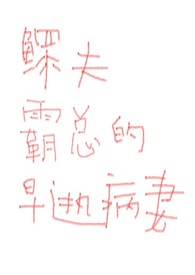 鳏夫
霸总的
早逝病妻